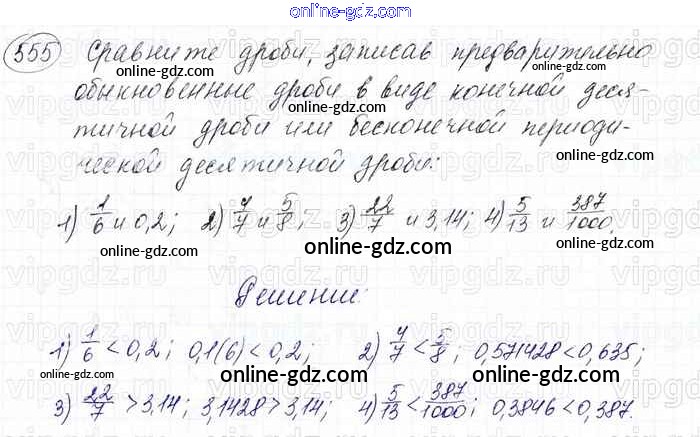 online-gdz.com
555 Сравните дроби, записав предварительно
online-gdz.com
обыкновенные дроби в виде конечной деся-
online-gdz.com
тичной дроби или бесконечной периоди-
ческой десятичной дроби:
online-gdz.com
1) 1/6 и 0,2; 2) 4/7 и 5/8; 3) 22/7 и 3,14; 4) 5/13 и 387/1000.
online-gdz.com online-gdz.com
online-gdz.com
Решение:
1) 1/6 < 0,2; 0,1(6) < 0,2; 2) 4/7 < 5/8; 0,571428 < 0,635;
online-gdz.com online-gdz.com
3) 22/7 > 3,14; 3,1428 > 3,14; 4) 5/13 < 387/1000; 0,3846 < 0,387.
online-gdz.com online-gdz.com